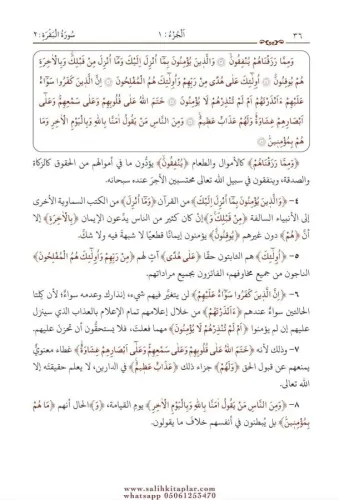 ٣٦ اَلْجُزْءُ: ١ سُورَةُ الْبَقَرَةِ: ٢
وَمِمَّا رَزَقْنَاهُمْ يُنْفِقُونَ وَالَّذِينَ يُؤْمِنُونَ بِمَا أُنْزِلَ إِلَيْكَ وَمَا أُنْزِلَ مِنْ قَبْلِكَ وَبِالْآخِرَةِ
هُمْ يُوقِنُونَ أُولَئِكَ عَلَى هُدًى مِنْ رَبِّهِمْ وَأُولَئِكَ هُمُ الْمُفْلِحُونَ إِنَّ الَّذِينَ كَفَرُوا سَوَاءٌ
عَلَيْهِمْ ءَأَنْذَرْتَهُمْ أَمْ لَمْ تُنْذِرْهُمْ لَا يُؤْمِنُونَ خَتَمَ اللهُ عَلَى قُلُوبِهِمْ وَعَلَى سَمْعِهِمْ وَعَلَى
أَبْصَارِهِمْ غِشَاوَةٌ وَلَهُمْ عَذَابٌ عَظِيمٌ وَمِنَ النَّاسِ مَنْ يَقُولُ آمَنَّا بِاللهِ وَبِالْيَوْمِ الْآخِرِ وَمَا
هُمْ بِمُؤْمِنِينَ
﴿وَمِمَّا رَزَقْنَاهُمْ﴾ كالأموال والطعام ﴿يُنْفِقُونَ﴾ يؤدُّون ما في أموالهم من الحقوق كالزكاة
والصدقة، وينفقون في سبيل الله تعالى محتسبين الأجرَ عنده سبحانه.
٤- ﴿وَالَّذِينَ يُؤْمِنُونَ بِمَا أُنْزِلَ إِلَيْكَ﴾ من القرآن ﴿وَمَا أُنْزِلَ﴾ من الكتب السماوية الأخرى
إلى الأنبياء السالفة ﴿مِنْ قَبْلِكَ وَ﴾إنْ كان كثير من الناس يدَّعون الإيمان ﴿بِالْآخِرَةِ﴾ إلا
أنَّ ﴿هُمْ﴾ دون غيرهم ﴿يُوقِنُونَ﴾ يؤمنون إيمانًا قطعيًا لا شبهةَ فيه ولا شكَّ.
٥- ﴿أُولَئِكَ﴾ هم الثابتون حقًا ﴿عَلَى هُدًى﴾ آتٍ لهم ﴿مِنْ رَبِّهِمْ وَأُولَئِكَ هُمُ الْمُفْلِحُونَ﴾
الناجون من جميع مخاوفهم، الفائزون بجميع مراداتهم.
٦- ﴿إِنَّ الَّذِينَ كَفَرُوا سَوَاءٌ عَلَيْهِمْ﴾ لن يتغيَّر فيهم شيء، إنذارك وعدمه سواءٌ؛ لأن كِلتا
الحالتين سواءٌ عندهم ﴿ءَأَنْذَرْتَهُمْ﴾ من خلال إعلامهم تمام الإعلام بالعذاب الذي سينزل
عليهم إن لم يؤمنوا ﴿أَمْ لَمْ تُنْذِرْهُمْ لَا يُؤْمِنُونَ﴾ مهما فعلتَ، فلا يستحقُّون أن تحزنَ عليهم.
٧- وذلك لأنه ﴿خَتَمَ اللهُ عَلَى قُلُوبِهِمْ وَعَلَى سَمْعِهِمْ وَعَلَى أَبْصَارِهِمْ غِشَاوَةٌ﴾ غطاء معنويٌّ
يمنعهم عن قبول الحق ﴿وَلَهُمْ﴾ جزاء ذلك ﴿عَذَابٌ عَظِيمٌ﴾ في الدارين، لا يعلم حقيقتَه إلا
الله تعالى.
٨- ﴿وَمِنَ النَّاسِ مَنْ يَقُولُ آمَنَّا بِاللهِ وَبِالْيَوْمِ الْآخِرِ﴾ يومِ القيامة، ﴿وَ﴾الحال أنهم ﴿مَا هُمْ
بِمُؤْمِنِينَ﴾ بل يُبطنون في أنفسهم خلاف ما يقولون.
www.salihkitaplar.com
whatsapp 05061253470